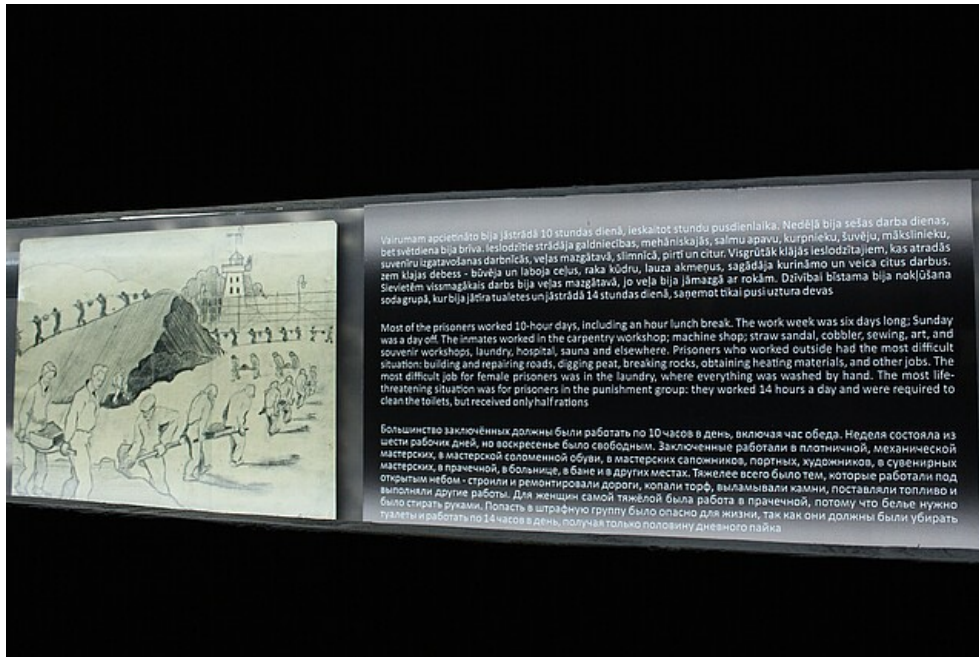 Vairumam apcietināto bija jāstrādā 10 stundas dienā, ieskaitot stundu pusdienlaika. Nedēļā bija sešas darba dienas,
bet svētdiena bija brīva. Ieslodzītie strādāja galdniecības, mehāniskajās, salmu apavu, kurpnieku, šuvēju, mākslinieku,
suvenīru izgatavošanas darbnīcās, veļas mazgātavā, slimnīcā, pirtī un citur. Visgrūtāk klājās ieslodzītajiem, kas atradās
zem klajas debess - būvēja un laboja ceļus, raka kūdru, lauza akmeņus, sagādāja kurināmo un veica citus darbus.
Sievietēm vissmagākais darbs bija veļas mazgātavā, jo veļa bija jāmazgā ar rokām. Dzīvībai bīstama bija nokļūšana
sodagrupā, kur bija jātīra tualetes un jāstrādā 14 stundas dienā, saņemot tikai pusi uztura devas
Most of the prisoners worked 10-hour days, including an hour lunch break. The work week was six days long; Sunday
was a day off. The inmates worked in the carpentry workshop; machine shop; straw sandal, cobbler, sewing, art, and
souvenir workshops, laundry, hospital, sauna and elsewhere. Prisoners who worked outside had the most difficult
situation: building and repairing roads, digging peat, breaking rocks, obtaining heating materials, and other jobs. The
most difficult job for female prisoners was in the laundry, where everything was washed by hand. The most life-
threatening situation was for prisoners in the punishment group: they worked 14 hours a day and were required to
clean the toilets, but received only half rations
Большинство заключённых должны были работать по 10 часов в день, включая час обеда. Неделя состояла из
шести рабочих дней, но воскресенье было свободным. Заключенные работали в плотничной, механической
мастерских, в мастерской соломенной обуви, в мастерских сапожников, портных, художников, в сувенирных
мастерских, в прачечной, в больнице, в бане и в других местах. Тяжелее всего было тем, которые работали под
открытым небом - строили и ремонтировали дороги, копали торф, выламывали камни, поставляли топливо и
выполняли другие работы. Для женщин самой тяжёлой была работа в прачечной, потому что белье нужно
было стирать руками. Попасть в штрафную группу было опасно для жизни, так как они должны были убирать
туалеты и работать по 14 часов в день, получая только половину дневного пайка